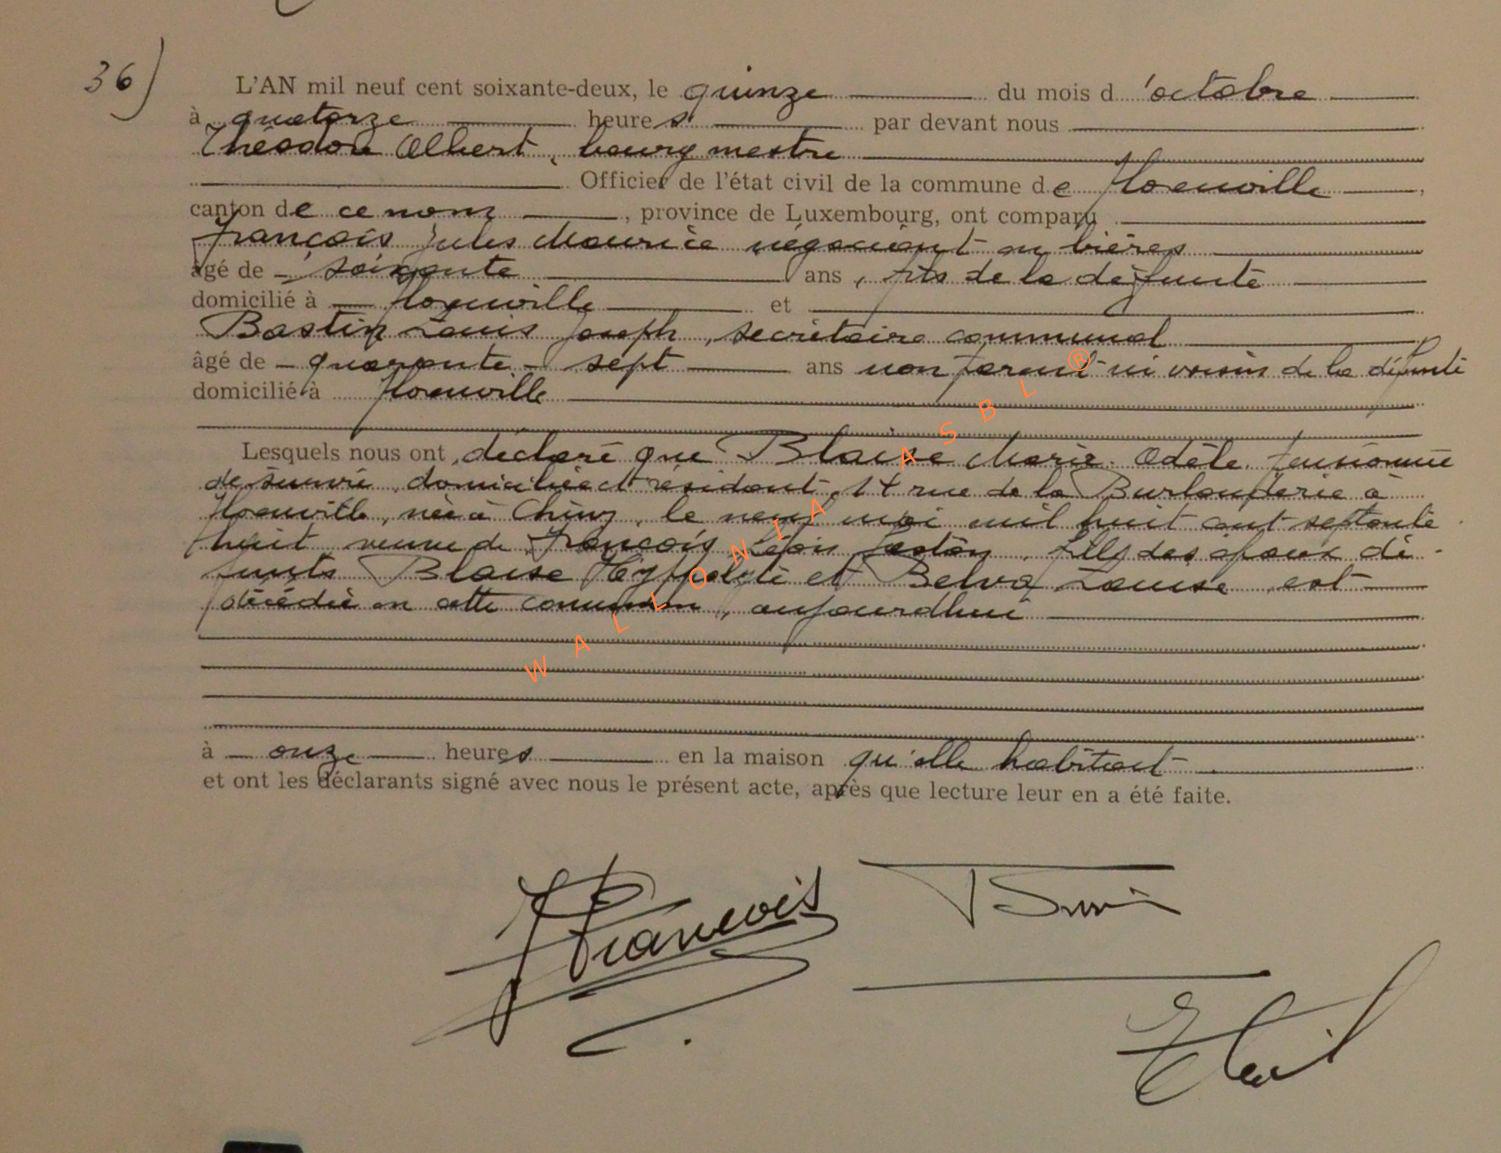 36)
L'AN mil neuf cent soixante-deux, le quinze du mois d'octobre
à quatorze heures par devant nous
Théodore Albert, bourgmestre
Officier de l'état civil de la commune de Florenville,
canton de ce nom, province de Luxembourg, ont comparu
François Jules Maurice négociant en bières
âgé de soixante ans, fils de la défunte
domicilié à Florenville et
Bastin Louis Joseph, secrétaire communal
âgé de quarante-sept ans non parent ni voisin de la défunte
domicilié à Florenville
Lesquels nous ont déclaré que Blaise Marie Odèle, pensionnée
de survie, domiciliée et résidant, 14 rue de la à
Florenville, née à Chiny, le neuf mai mil huit cent septante
huit veuve de François fille des époux dé-
funts Blaise Hyppolyte et Belva Louise, est
décédée en cette commune, aujourdhui
à onze heures en la maison qu'elle habitait
et ont les déclarants signé avec nous le présent acte, après que lecture leur en a été faite.
JFrancois
WALLONIA ASBL ®